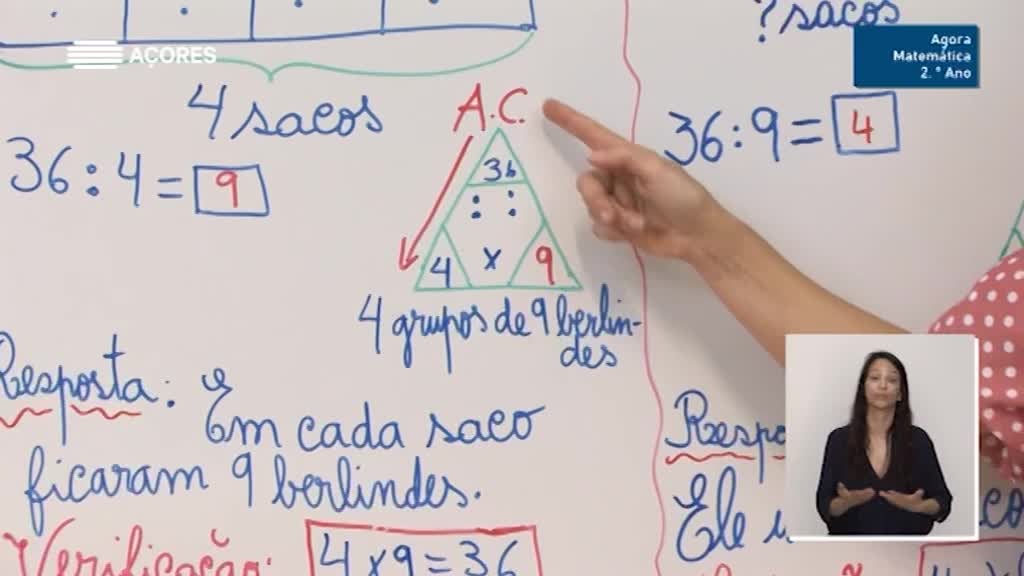 AÇORES
Agora
Matemática
2.º Ano
4 sacos
36 : 4 = 9
A.C.
36
: :
4 x 9
4 grupos de 9 berlin-
des
Resposta: Em cada saco
ficaram 9 berlindes.
Verificação:
4 x 9 = 36
? sacos
36 : 9 = 4
Ele